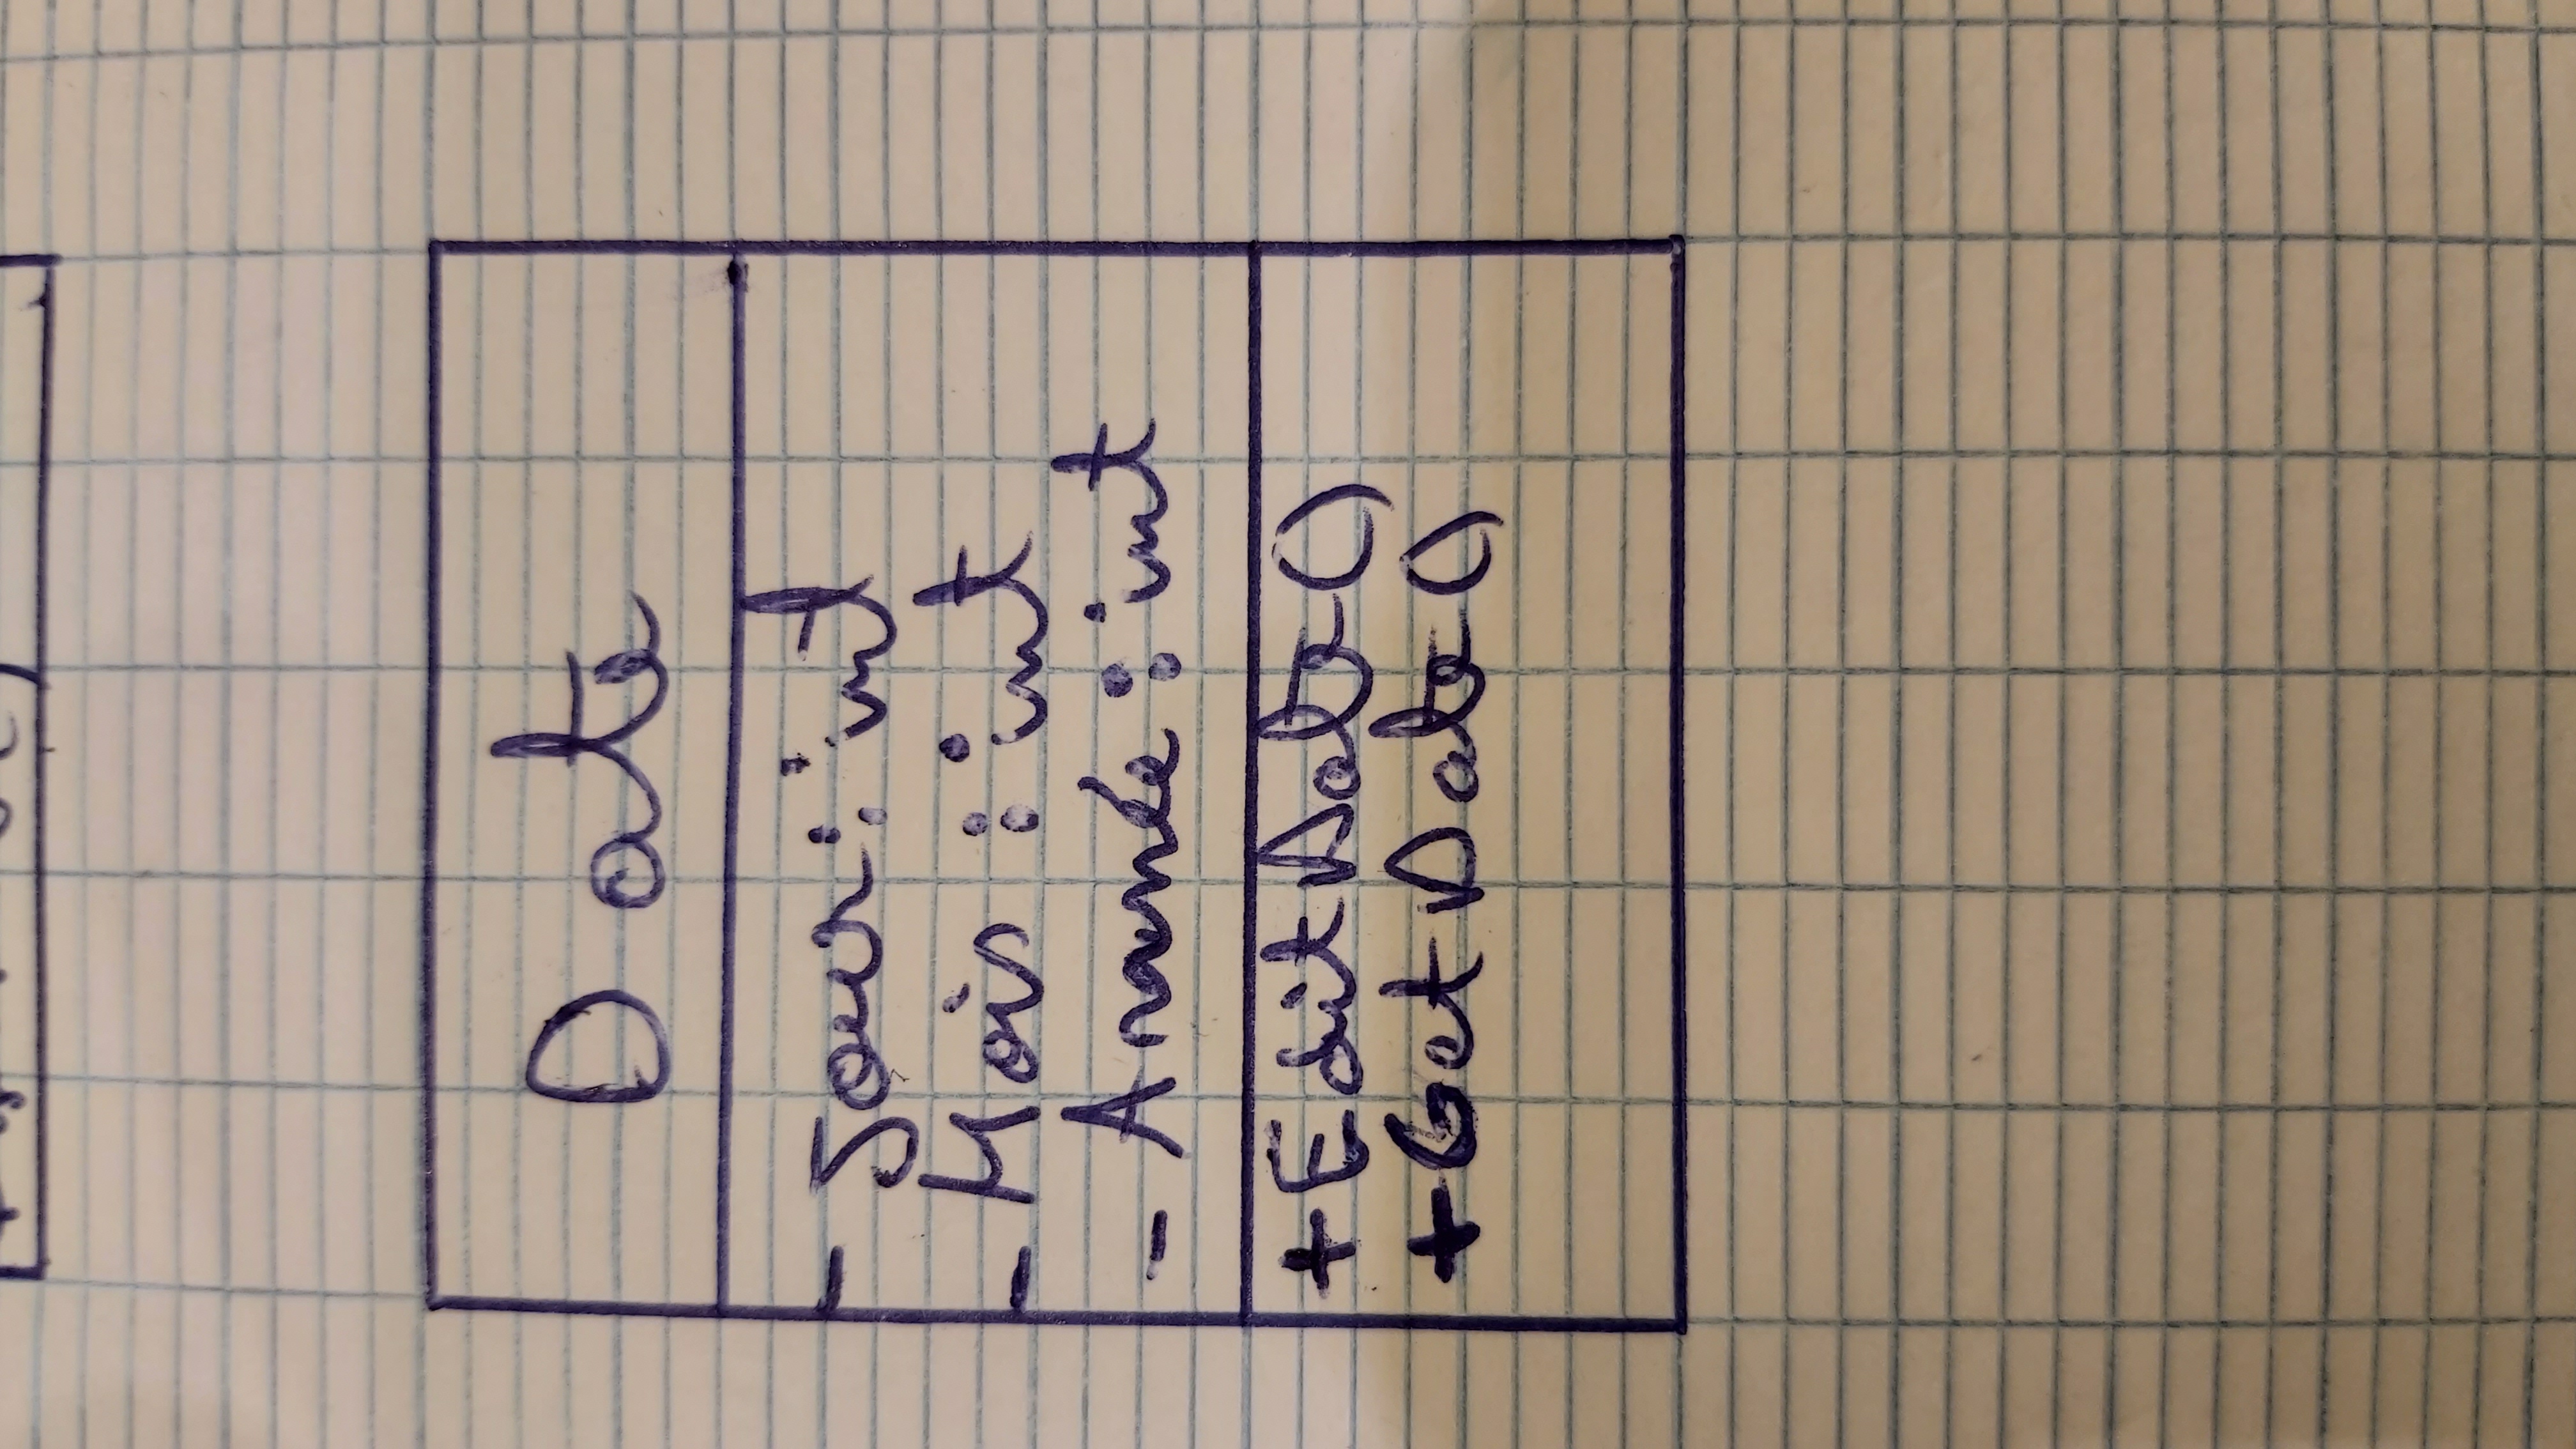 Date
- Jour : int
- Mois : int
- Année : int
+ EditDate()
+ GetDate()